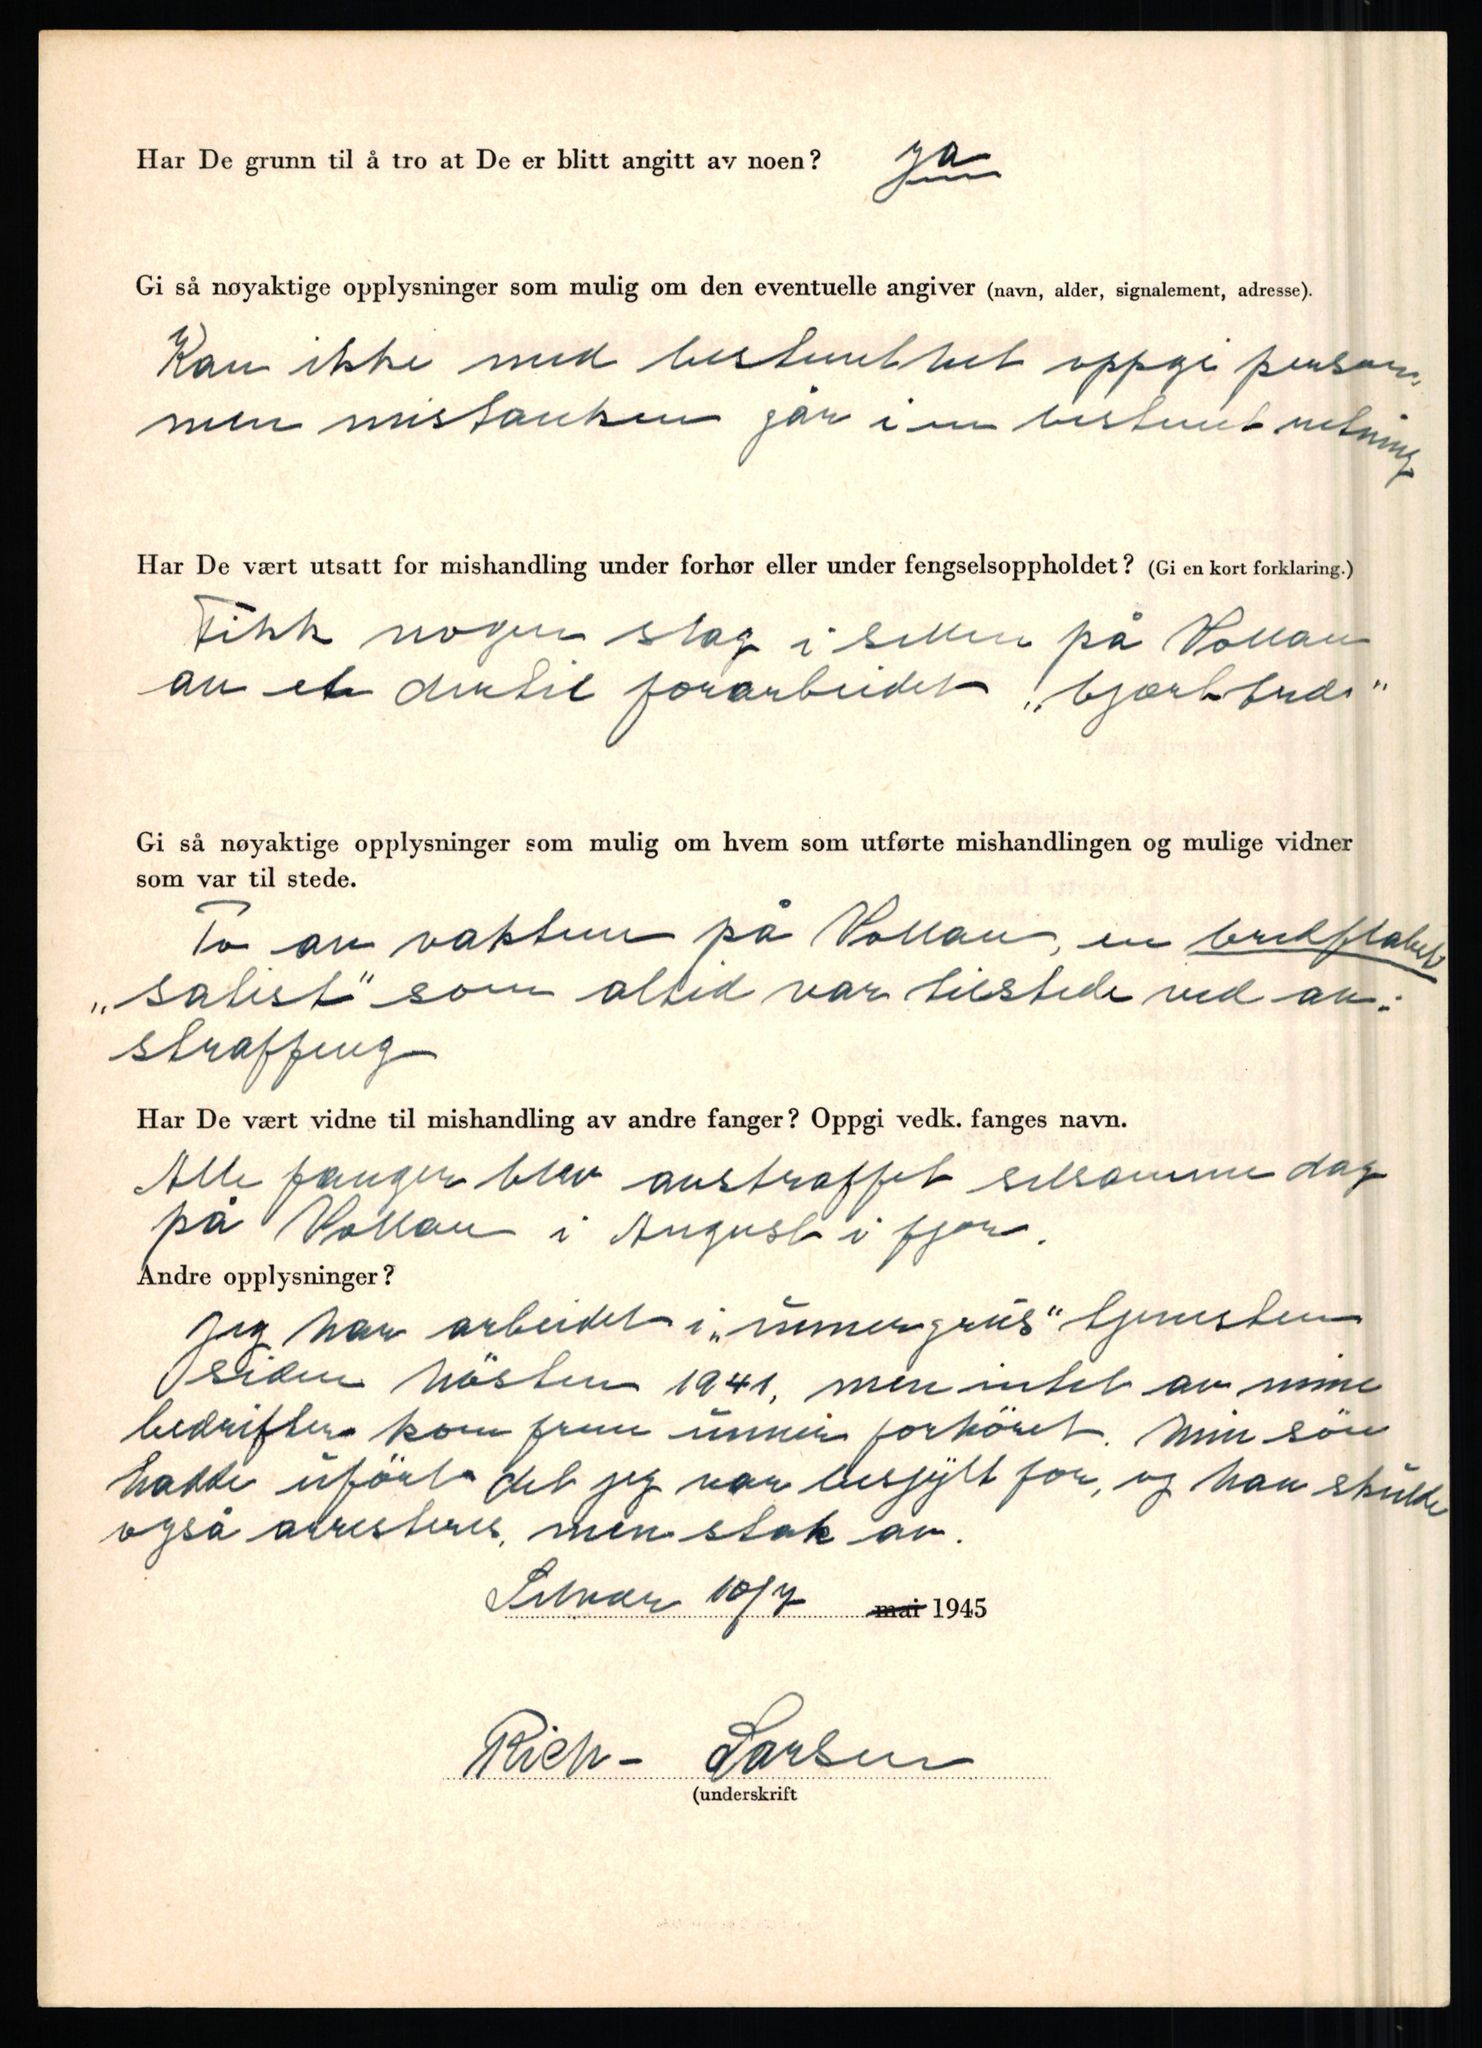 Har De grunn til å tro at De er blitt angitt av noen? Ja
Gi så nøyaktige opplysninger som mulig om den eventuelle angiver (navn, alder, signalement, adresse).
Kan ikke med bestemthet oppgi person,
men mistanken går i en bestemt retning
Har De vært utsatt for mishandling under forhør eller under fengselsoppholdet? (Gi en kort forklaring.)
Fikk nogen slag i sellen på Vollan
av et dertil forarbeidet
Gi så nøyaktige opplysninger som mulig om hvem som utførte mishandlingen og mulige vidner
som var til stede.
To av vaktene på Vollan, en
som altid var tilstede ved av-
straffing
Har De vært vidne til mishandling av andre fanger? Oppgi vedk. fanges navn.
Alle fanger blev avstraffet selsamme dag
på Vollan i August i fjor.
Andre opplysninger?
Jeg har arbeidet i „unnergrus“ tjenesten
siden hösten 1941, men intet av mine
bedrifter kom frem unner forhöret. Min sön
hadde uført det jeg var besjylt for, og han skulde
også arresteres, men stak av.
10/7 mai 1945
Rich- Larsen
(underskrift